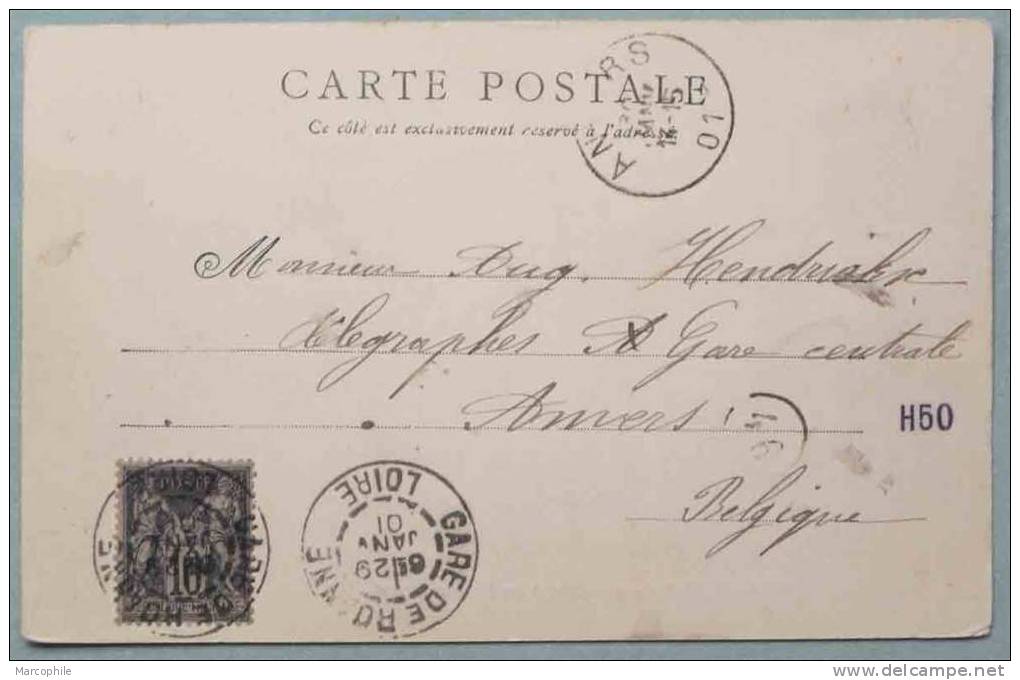 CARTE POSTALE
Ce côté est exclusivement réservé à l'adresse
ANVERS
15
01
Monsieur Aug. Hendrickx
Telegraphes A Gare centrale
Anvers
H50
Belgique
GARE DE ROANNE
LOIRE
6E 29
JANV
01
10
Marcophile
www.delcampe.net